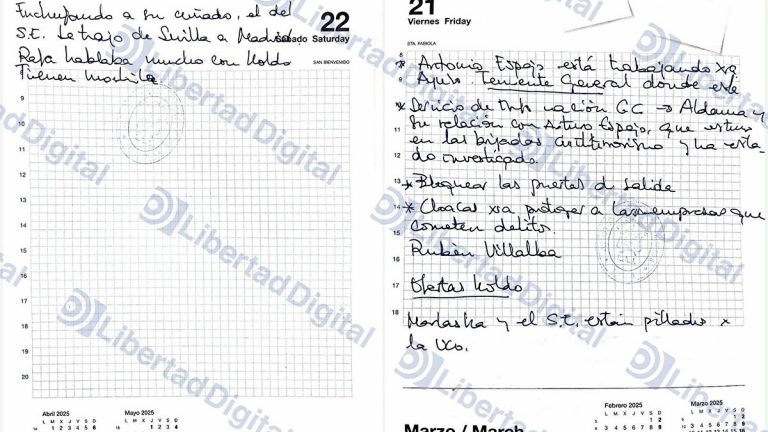 Enchufando a su cuñado, el del
S.E. Le trajo de Sevilla a Madrid
Rafa hablaba mucho con Koldo
Tienen mochila
22
Sábado Saturday
SAN BIENVENIDO
8
9
10
11
12
13
14
15
16
17
18
19
20
Abril 2025
L M X J V S D
1 2 3 4 5 6
Mayo 2025
L M X J V S D
1 2 3 4
21
Viernes Friday
STA. FABIOLA
* Antonio Espejo está trabajando xra
Ayuso. Teniente General donde esté
* Servicio de Información GC → Aldama y
su relación con Arturo Espejo, que estuvo
en las brigadas antiterrorismo y ha esta-
do investigado.
* Bloquear las puertas de salida
* Cloacas xra proteger a las empresas que
cometen delito.
Rubén Villalba
Ofertas Koldo
Marlaska y el S.E. están pillados x
la UCO.
8
9
10
11
12
13
14
15
16
17
18
Febrero 2025
L M X J V S D
1 2
Marzo 2025
L M X J V S D
1 2
Marzo / March
LibertadDigital